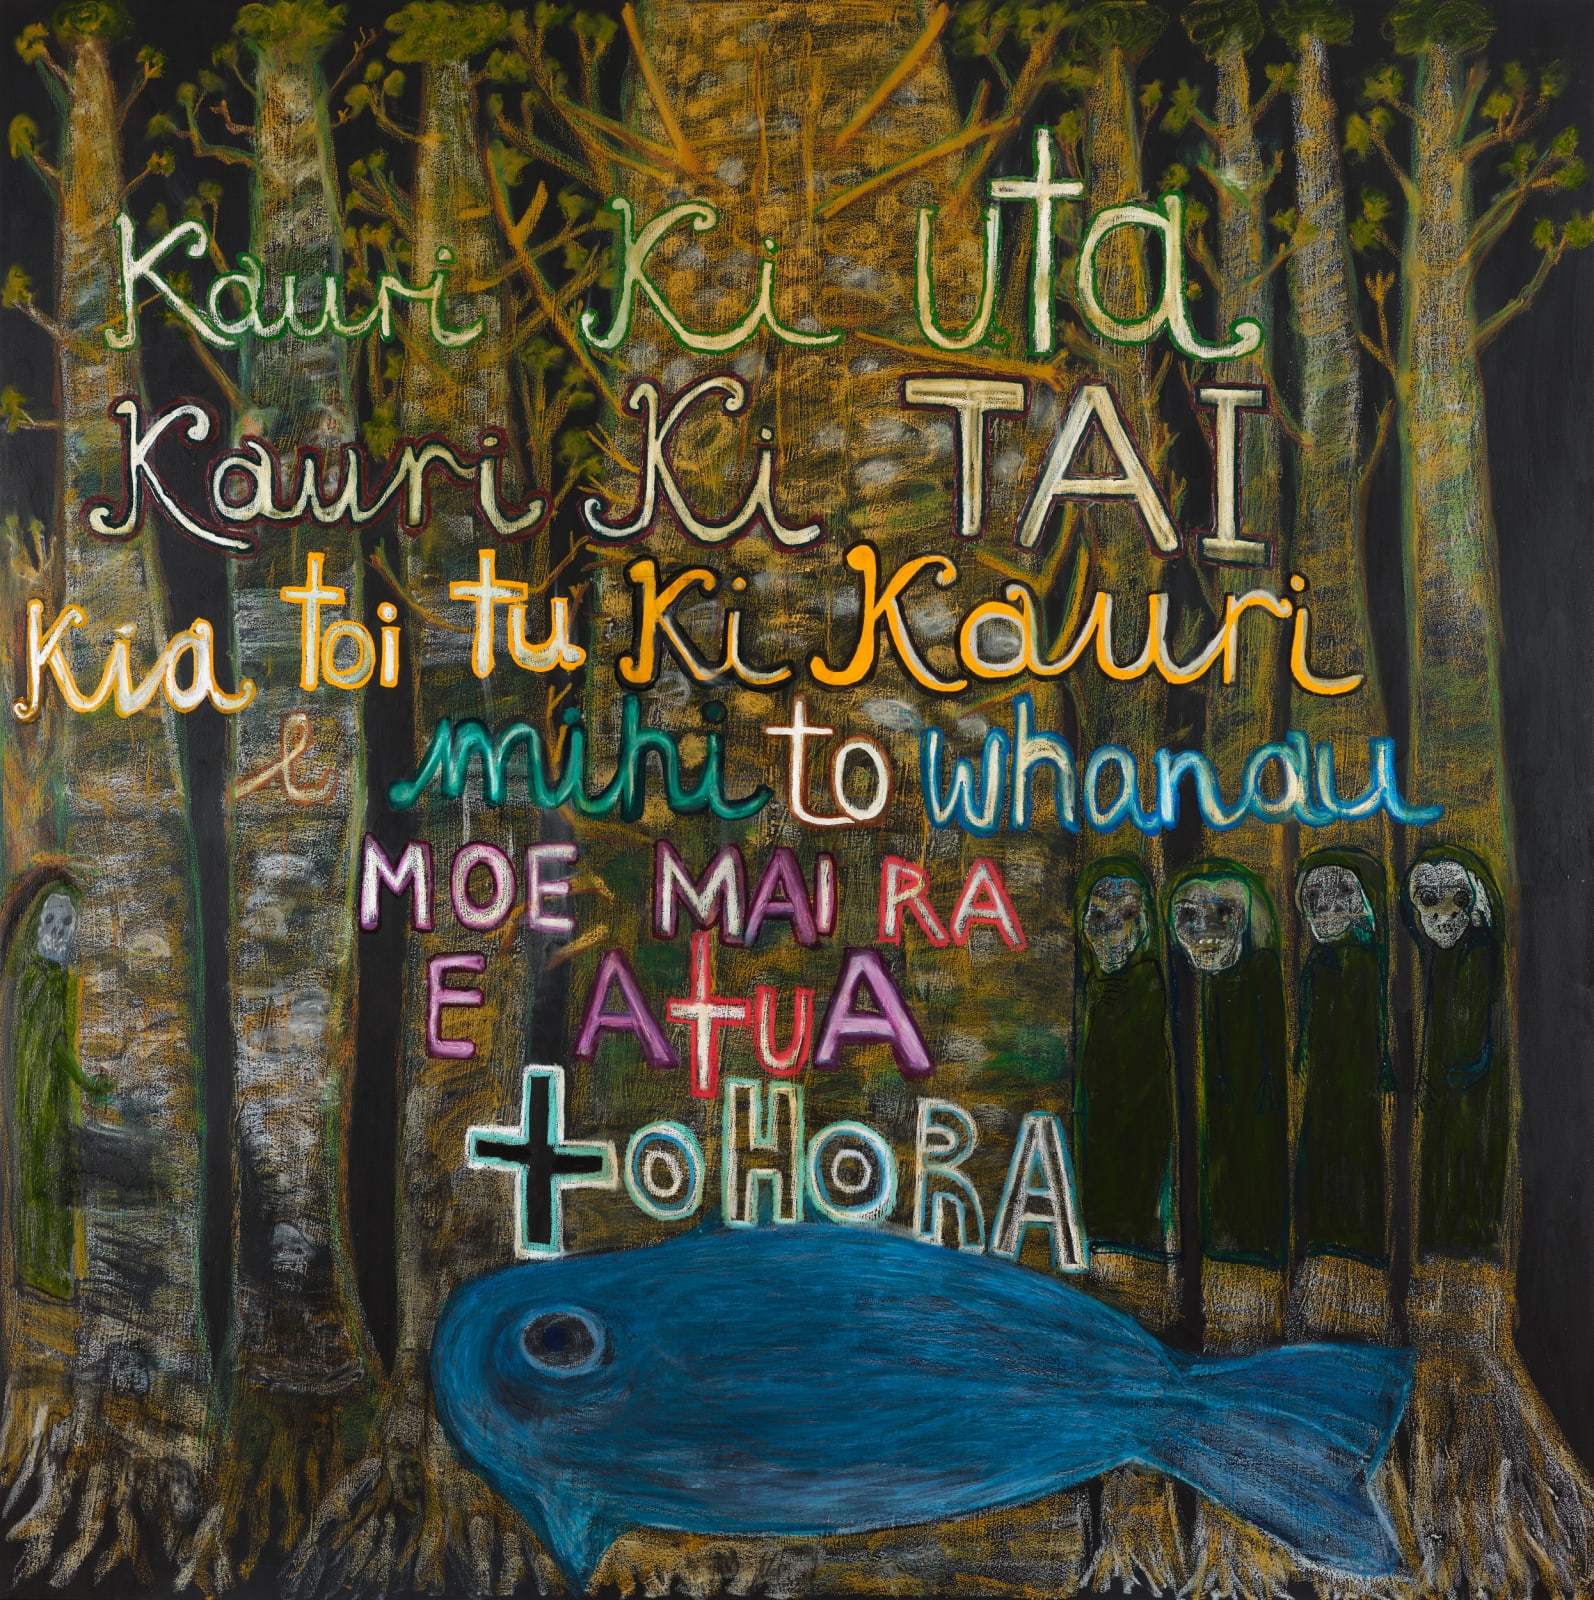 Kauri Ki uta
Kauri Ki TAI
Kia toi tu Ki Kauri
e mihi to whanau
MOE MAI RA
E AtuA
tOHORA